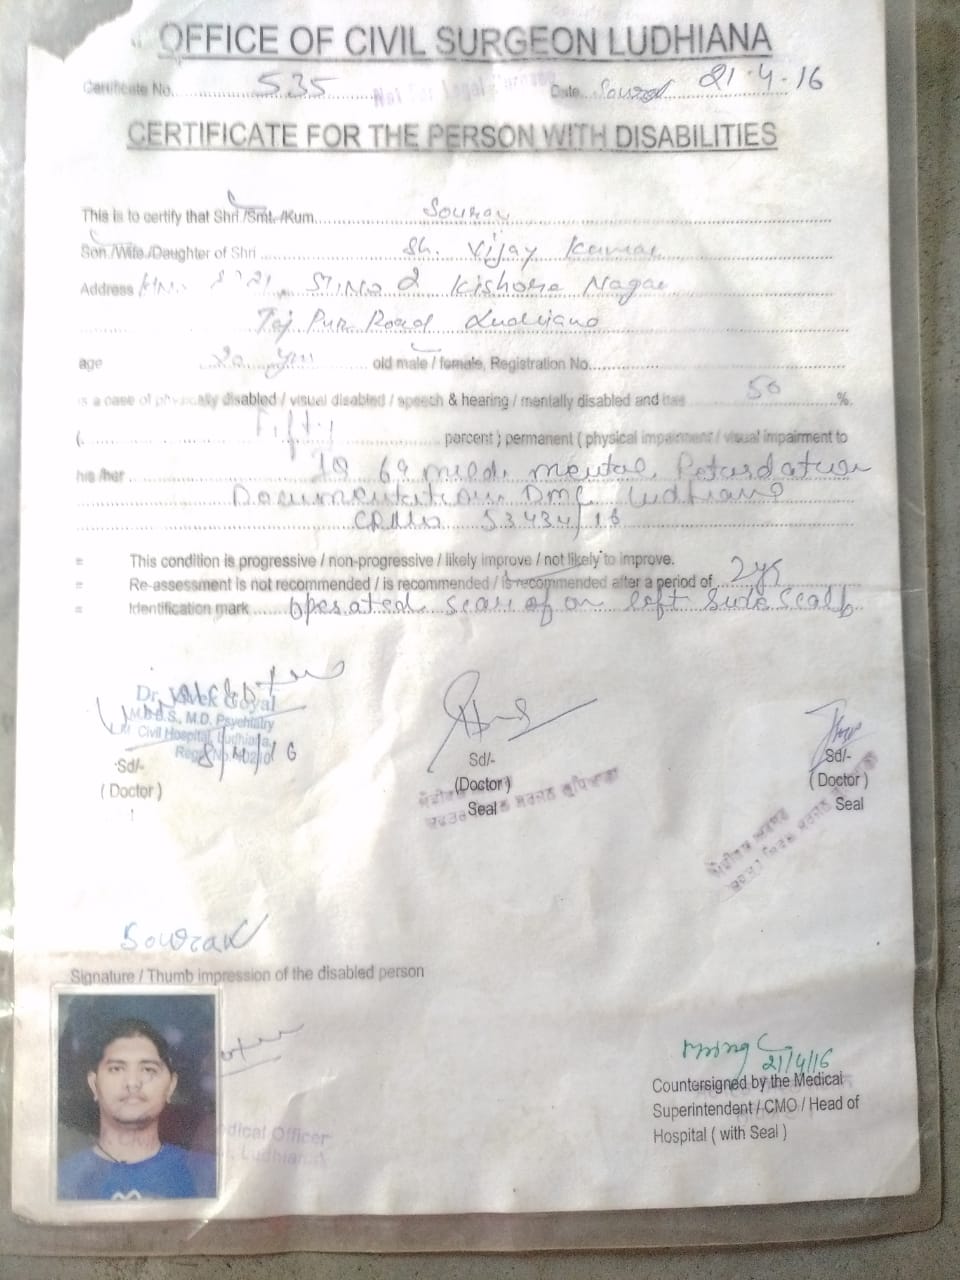 OFFICE OF CIVIL SURGEON LUDHIANA
Certificate No. 535 Not For Legal Purpose Date 21-4-16
CERTIFICATE FOR THE PERSON WITH DISABILITIES
This is to certify that Shri /Smt. /Kum. Sourav
Son /Wife /Daughter of Shri Sh. Vijay Kumar
Address St. No 2 Kishore Nagar
Taj Pur Road Ludhiana
age 20 yrs old male / female, Registration No.
is a case of physically disabled / visual disabled / speech & hearing / mentally disabled and has 50 %
( Fifty percent ) permanent ( physical impairment / visual impairment to
his /her IQ 69 mild mental Retardation
Documentation DMC Ludhiana
53434/16
= This condition is progressive / non-progressive / likely improve / not likely to improve.
= Re-assessment is not recommended / is recommended / is recommended after a period of 2 yrs
= Identification mark operated scar on left side scalp
Dr. Vivek Goyal
M.B.B.S., M.D. Psychiatry
Civil Hospital, Ludhiana
Sd/-
( Doctor )
Sd/-
(Doctor)
Seal
Sd/-
( Doctor )
Seal
Sourav
Signature / Thumb impression of the disabled person
Medical Officer
Ludhiana
21/4/16
Countersigned by the Medical
Superintendent / CMO / Head of
Hospital ( with Seal )